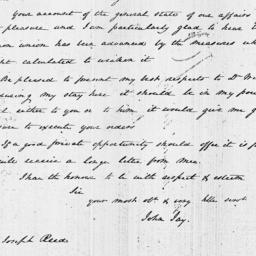 Your account of the general state of our affairs
pleasure and I am particularly glad to hear t
union has been advanced by the measures wh
calculated to weaken it
Be pleased to present my best respects to Dr
during my stay here it should be in my pow
either to you or to him, it would give me g
to execute your orders
If a good private opportunity should offer it is p
receive a longer letter from me.
I have the honour to be with respect & esteem
Sir
your most obt & very hble servt
John Jay.
Joseph Reed